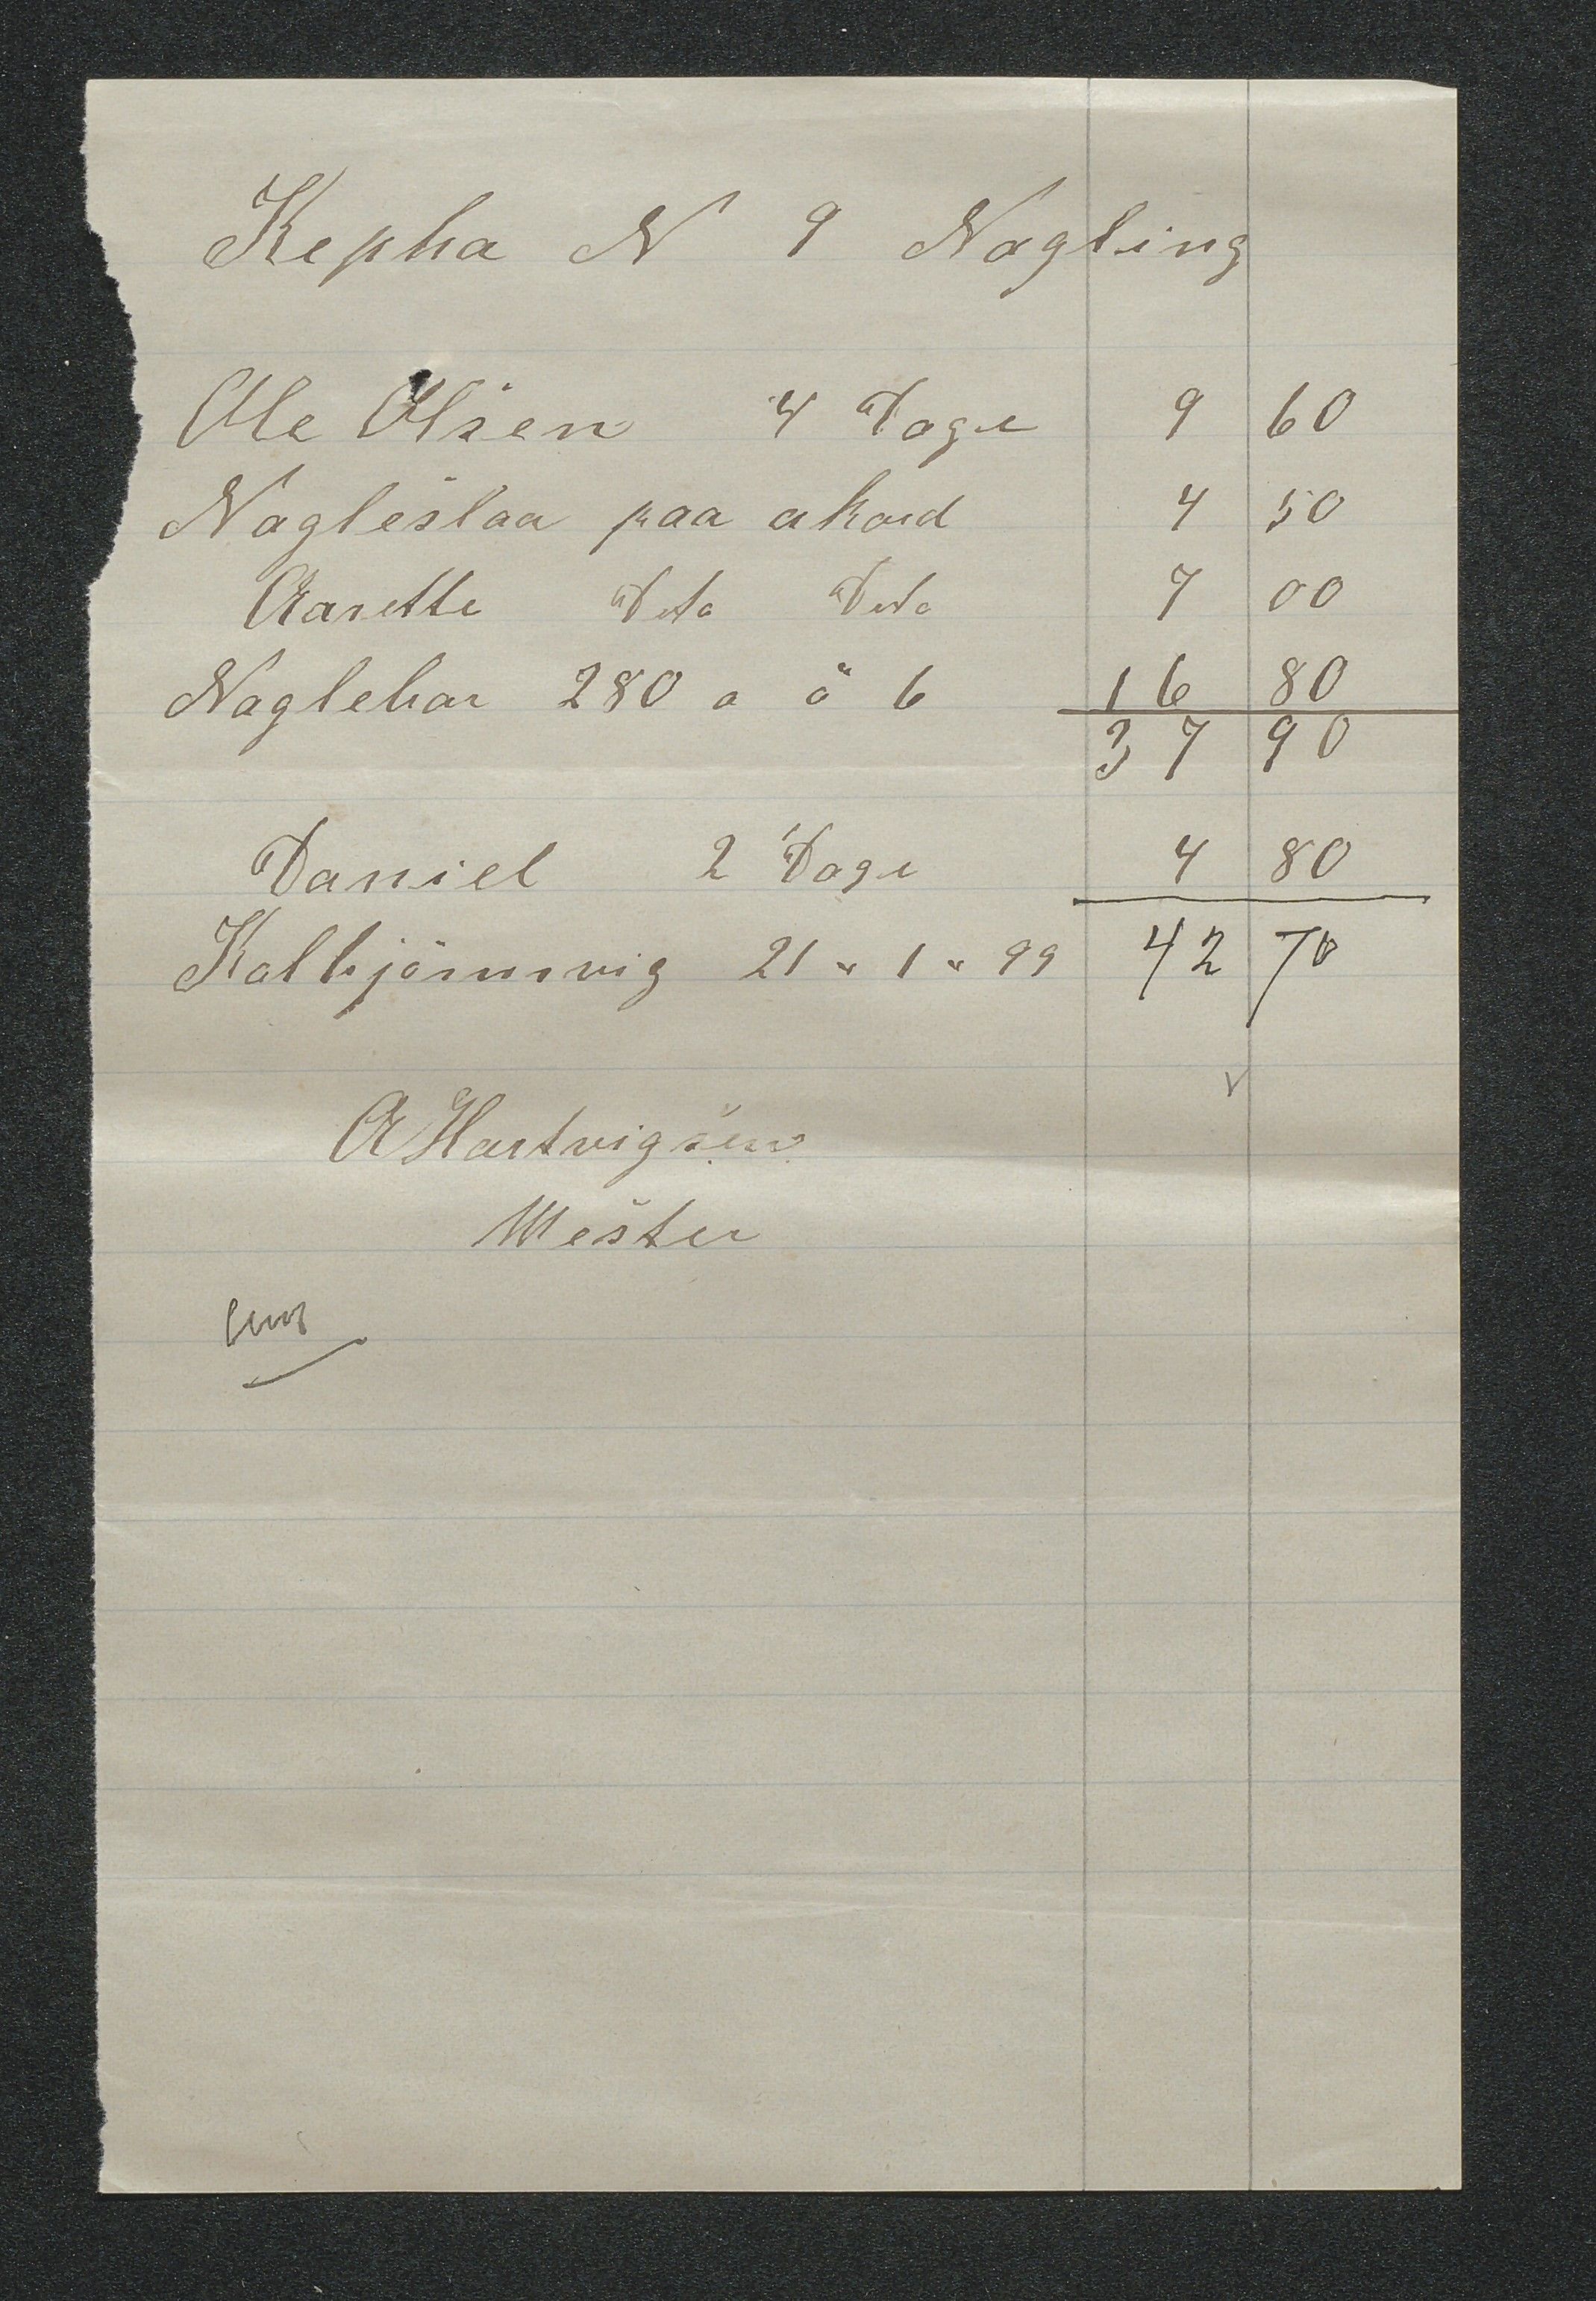 Kepha N 9 Nagling
Ole Olsen 4 Dage 9 60
Nagleslaa paa akord 4 50
Aarette Deto Deto 7 00
Naglehar 280 a ö 6 16 80
37 90
Daniel 2 Dage 4 80
Kolbjörnsvig 21 " 1 " 99 42 70
A Hartvigsen
Mester